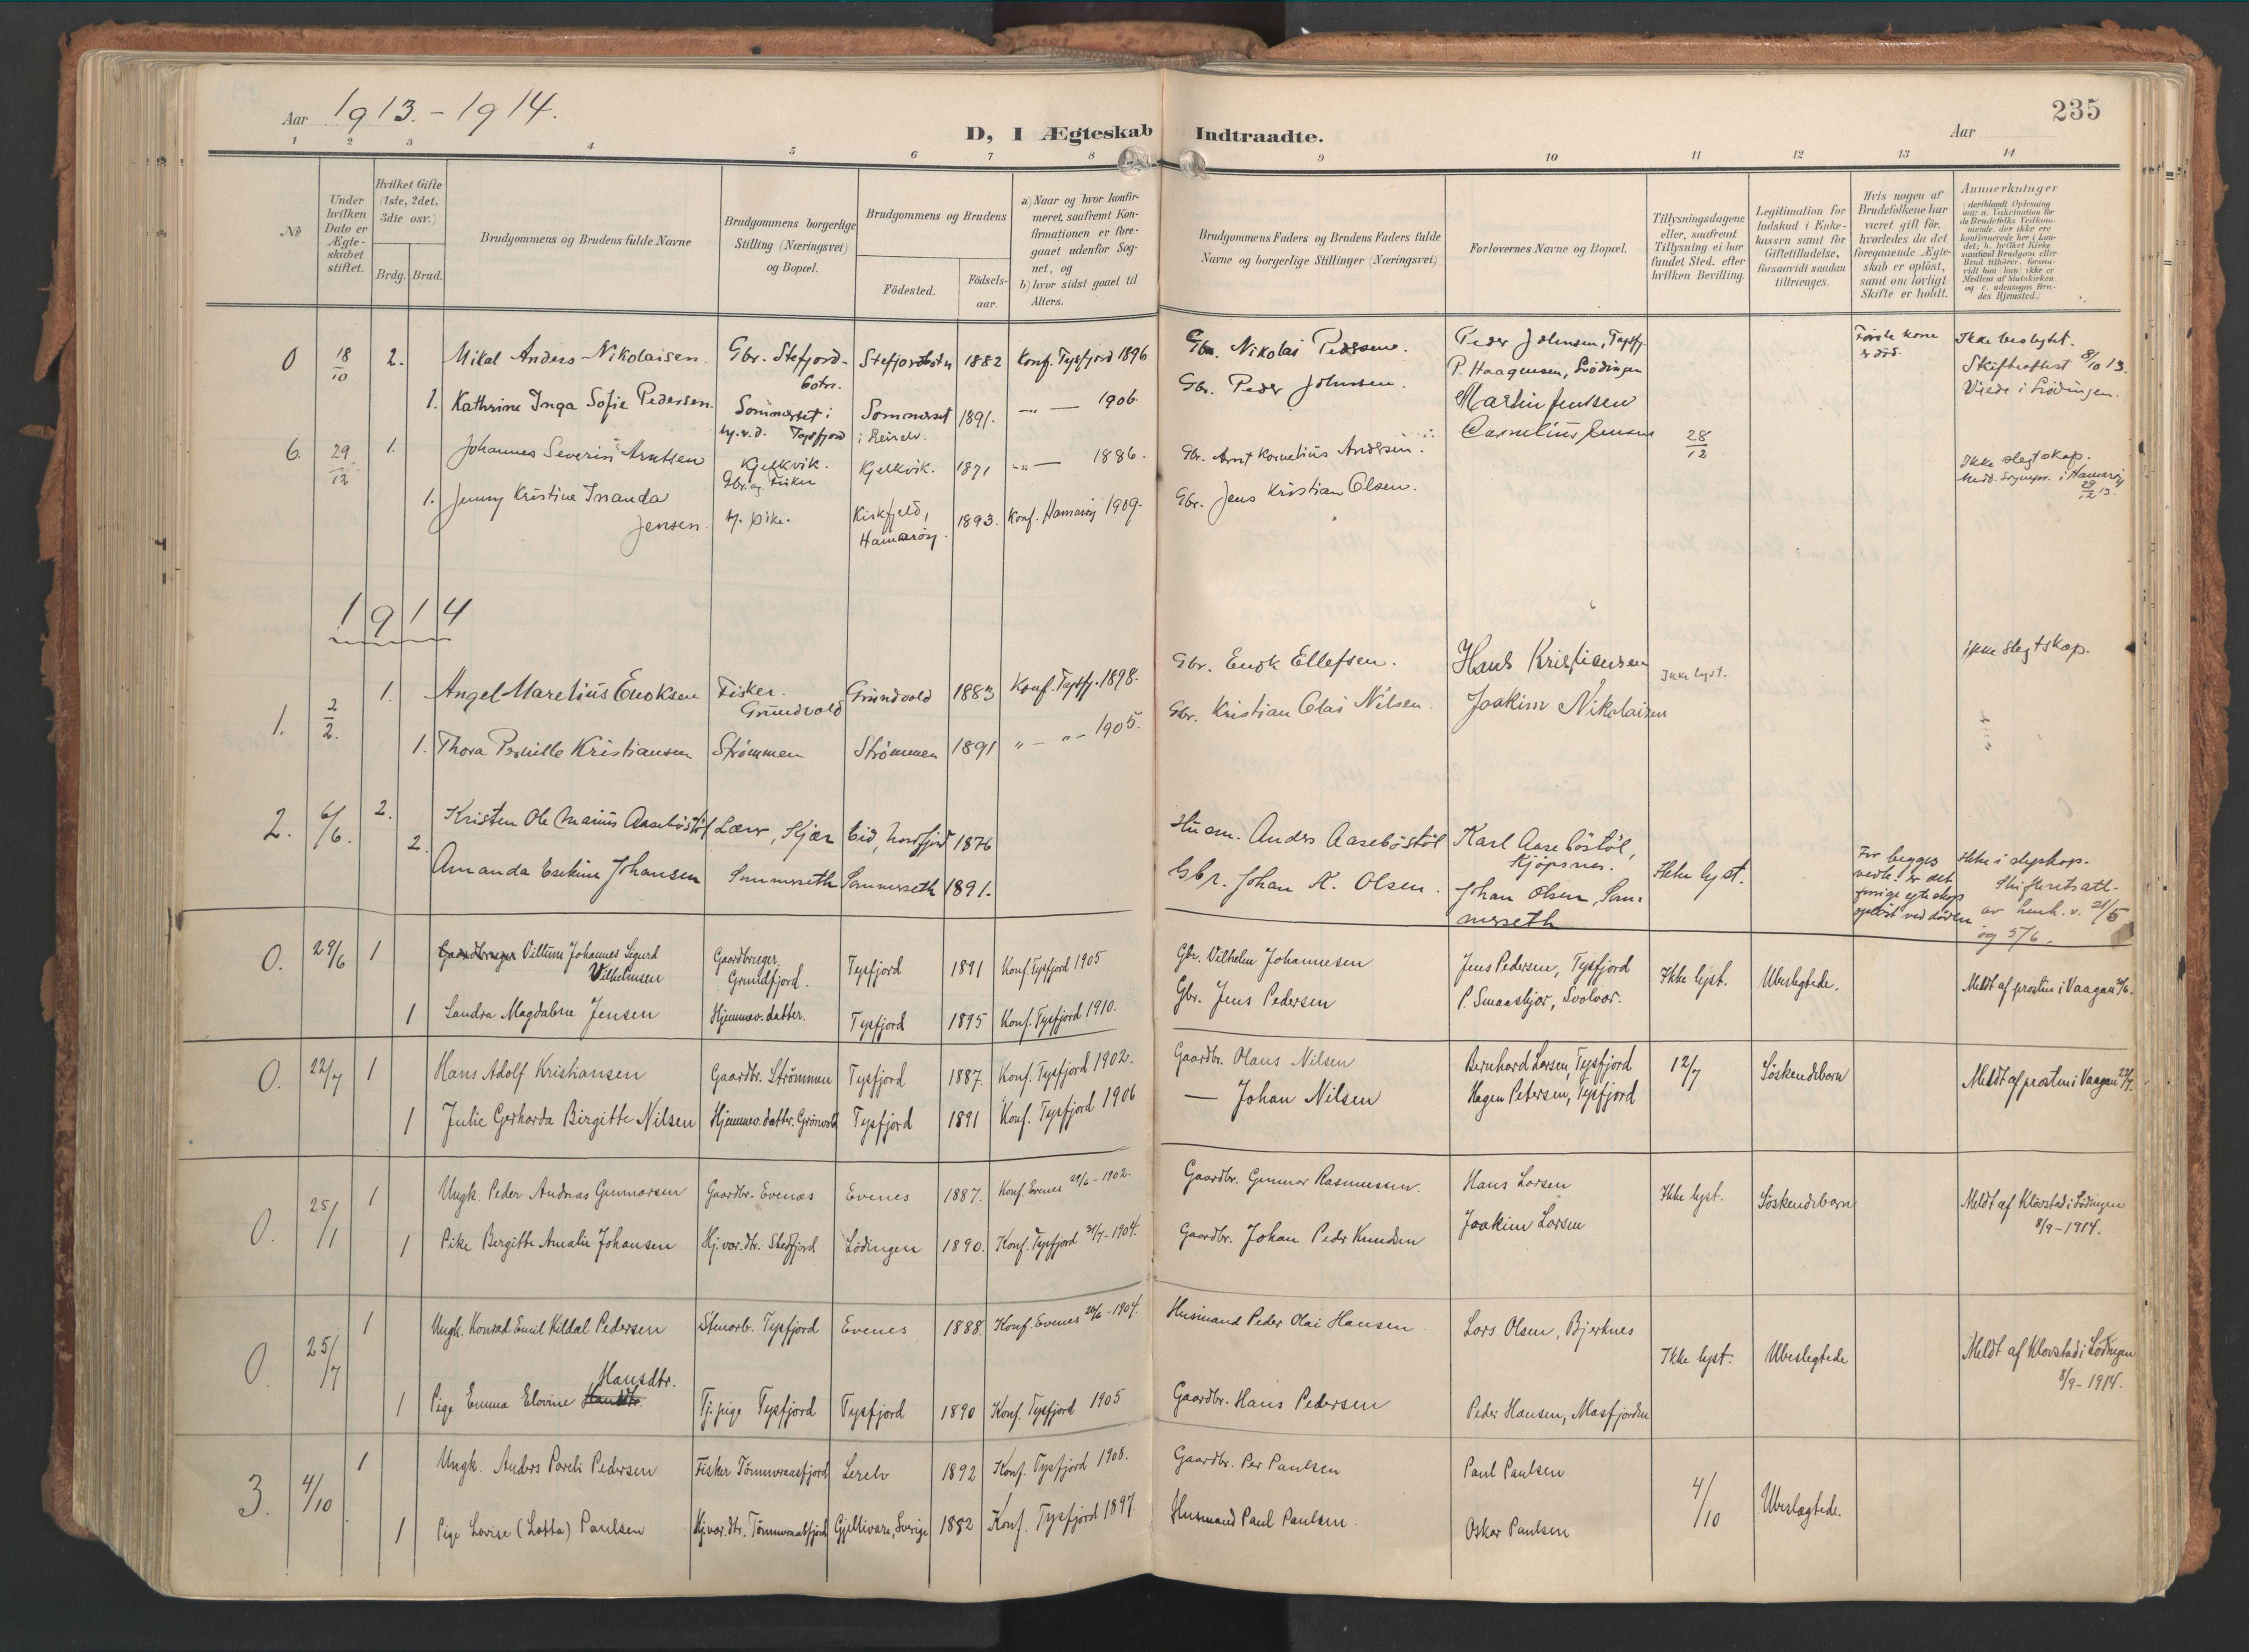 Aar 1913.-1914.
D, I Ægteskab Indtraadte.
Aar
235
1 2 3 4 5 6 7 8 9 10 11 12 13 14
No
Under hvilken Dato er Ægteskabet stiftet.
Hvilket Gifte (1ste, 2det, 3die osv.)
Brdg. Brud.
Brudgommens og Brudens fulde Navne
Brudgommens borgerlige Stilling (Næringsvei) og Bopæl.
Brudgommens og Brudens
Födested.
Födsels-aar.
a) Naar og hvor konfirmeret, saafremt Konfirmationen er foregaaet udenför Sognet, og
b) hvor sidst gaaet til Alters.
Brudgommens Faders og Brudens Faders fulde Navne og borgerlige Stillinger (Næringsvei)
Forlovernes Navne og Bopæl.
Tillysningsdagene eller, saafremt Tillysning ei har fundet Sted, efter hvilken Bevilling.
Legitimation for Indskud i Enkekassen samt for Giftetilladelse, forsaavidt saadan tiltrænges.
Hvis nogen af Brudefolkene har været gift för, hvorledes da det foregaaende Ægteskab er oplöst, samt om lovligt Skifte er holdt.
Anmerkninger (deriblandt Oplysning om: a. Vakcination for de Brudefolks Vedkommende, der ikke ere konfirmerede her i Landet; b. hvilket Kirkesamfund Brudgom eller Brud tilhörer, forsaavidt han (hun) ikke er Medlem af Statskirken og c. udensogns Brudes Hjemsted.)
0 18/10 2. Mikal Anders Nikolaisen. Gbr. Stefjordbotn. Stefjordbotn 1882 Konf. Tysfjord 1896 Gbr. Nikolai Pedersen. Peder Johnsen, Tysfj. P. Haagensen, Lödingen Første kone er död. Ikke beslegtet. Skifteattest 8/10 13. Viede i Lödingen.
1. Kathrine Inga Sofie Pedersen. Sommerset i Tysfjord Sommerset 1891. -"- 1906. Gbr. Peder Johnsen.
6. 29/12 1. Johannes Severin Arntsen Kjelkvik. Gbr. og Fisker Kjelkvik. 1871 -"- 1886. Gbr. Arnt Kornelius Andersen. Martin Jensen Cornelius Jensen 28/12 Ikke slegtskap. i Hamarøy 29/12 13.
1. Jenny Kristine Inanda Jensen. tj. pike. Hamarøy. 1893. Konf. Hamarøy 1909. Gbr. Jens Kristian Olsen.
1914
1. 2/2. 1. Angel Marelius Enoksen Fisker. Grundvold Grundvold 1883 Konf. Tysfj. 1898. Gbr. Enok Ellefsen. Hans Kristiansen Ikke lyst. ikke slegtskap.
1. Thora Pernille Kristiansen Strømmen Strømmen 1891 "-"- 1905. Gbr. Kristian Olai Nilsen. Joakim Nikolaisen
2. 6/6. 2. Kristen Ole Marius Aasebøstöl Lærer, Kjær Eid, Nordfjord 1876 Husm. Anders Aasebøstöl Karl Aasebøstöl, Kjøpsnes. Ikke lyst. For begges vedk. er det forrige egteskap opløst ved døden Ikke i slegskap. Skifteretsatt. av henh. v. 21/5 og 5/6.
2. Amanda Esekine Johansen Sommerseth Sommerseth 1891. Gbr. Johan K. Olsen. Johan Olsen, Sommerseth
0. 29/6 1 Gaardbruger Villum Johannes Sigurd Vilhelmsen Gaardbruger. Grundfjord. Tysfjord 1891 Konf. Tysfjord 1905 Gbr. Vilhelm Johannesen Jens Pedersen, Tysfjord Ikke lyst. Ubeslegtede. Meldt af prosten i Vaagan 29/6.
1 Sandra Magdalene Jensen Hjemmev. datter. Tysfjord 1895 Konf. Tysfjord 1910. Gbr. Jens Pedersen P. Smaaskjær, Svolvær.
0. 22/7 1 Hans Adolf Kristiansen Gaardbr. Strömmen Tysfjord 1887. Konf. Tysfjord 1902. Gaardbr. Olaus Nilsen Bernhard Larsen, Tysfjord 12/7 Söskendebarn Meldt af prosten i Vaagan 22/7.
1 Julie Gerharda Birgitte Nilsen Hjemmev. datter. Tysfjord 1891 Konf. Tysfjord 1906 — Johan Nilsen Hagen Petersen, Tysfjord
0. 25/1 1 Ungk. Peder Andreas Gunnarsen Gaardbr. Evenæs Evenes 1887. Konf. Evenes 29/6-1902. Gaardbr. Gunnar Rasmussen. Hans Larsen Ikke lyst. Söskendebarn Meldt af Klovstad i Lödingen 8/9-1914.
1 Pike Bergitte Amalie Johansen Hj. vær. dtr. Stedfjord Lödingen 1890. Konf. Tysfjord 31/7-1904. Gaardbr. Johan Peder Knudsen Joakim Larsen
0. 25/7 1 Ungk. Konrad Emil Kildal Pedersen Stenarb. Tysfjord Evenes 1888. Konf. Evenes 26/6-1904. Husmand Peder Olai Hansen Lars Olsen, Bjerknes Ikke lyst. Ubeslegtede Meldt af Klovstad i Lödingen 8/9-1914.
1 Pige Emma Elovine Handtr. Hansdtr. Tj. pige Tysfjord Tysfjord 1890 Konf. Tysfjord 1905 Gaardbr. Hans Pedersen Peder Hansen, Masfjorden
3. 4/10 1 Ungk. Anders Pareli Pedersen Fisker Tömmeraasfjord Lerelv 1892 Konf. Tysfjord 1908. Gaardbr. Per Paulsen Paul Paulsen 4/10 Ubeslægtede.
1 Pige Lovise (Lotta) Paulsen Hj. vær. dtr. Tömmeraasfjord Gjellivare, Sverige 1882 Konf. Tysfjord 1897. Husmand Paul Paulsen. Oskar Paulsen